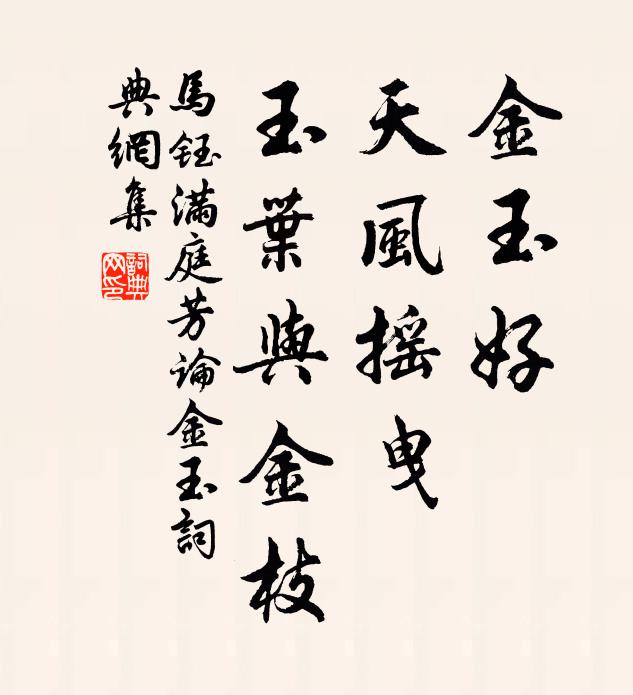 金玉好
天風摇曳
玉葉與金枝
馬鈺滿庭芳論金玉詞
典網集
詞典
网印